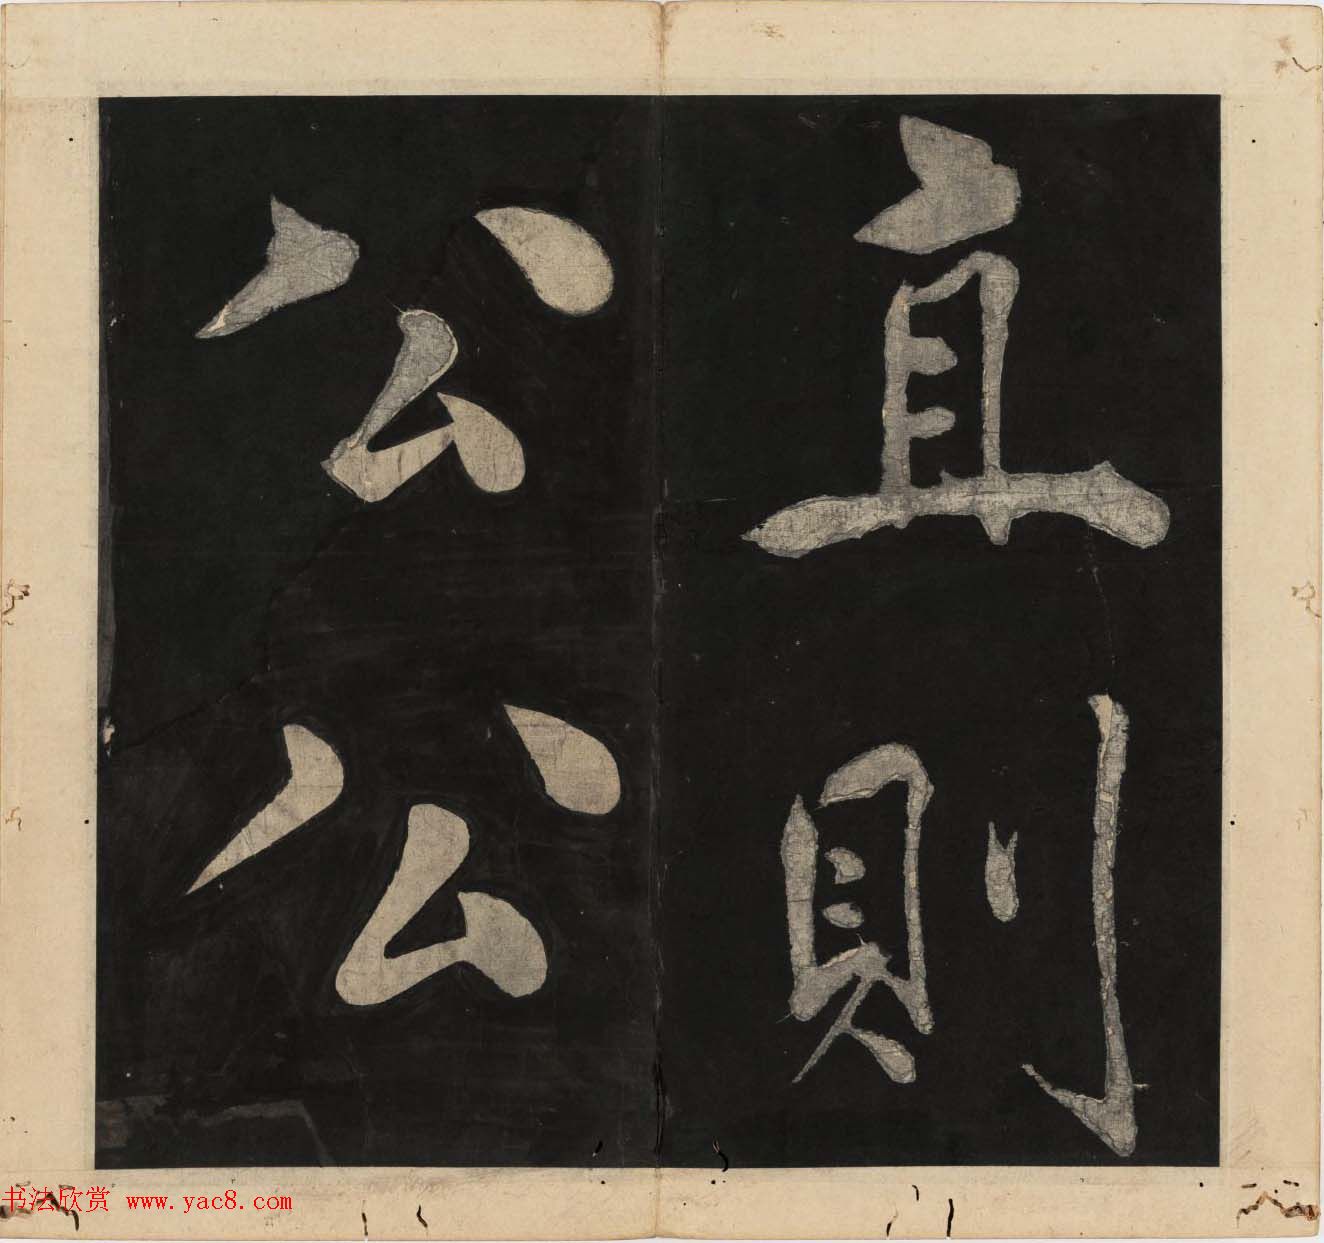 直則
公公
书法欣赏 www.yac8.com